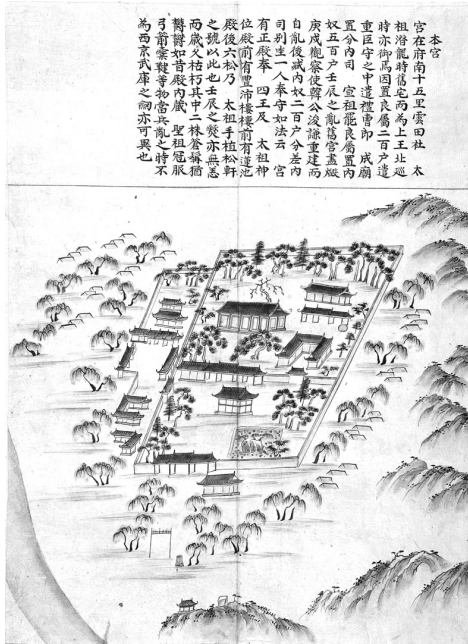 本宮
宮在府南十五里雲田社 太
祖潛龍時舊宅而為上王北巡
時亦御焉因置良屬二百户遣
重臣守之中遣禮曹郎 成廟
置分內司 宣祖罷良屬置內
奴五百户壬辰之亂舊宮盡燬
庚戌觀察使韓公浚謙重建而
自亂後減內奴二百户分差內
司別坐一人奉守如法云 宮
有正殿奉 四王及 太祖神
位殿前有豐沛樓樓前有蓮池
殿後六松乃 太祖手植松軒
之號以此也壬辰之燹亦無恙
而歲久枯朽其中二株蒼髯猶
欝欝如昔殿內藏 聖祖冠服
弓箭櫜鞬等物當兵亂之時不
為西京武庫之劒亦可異也